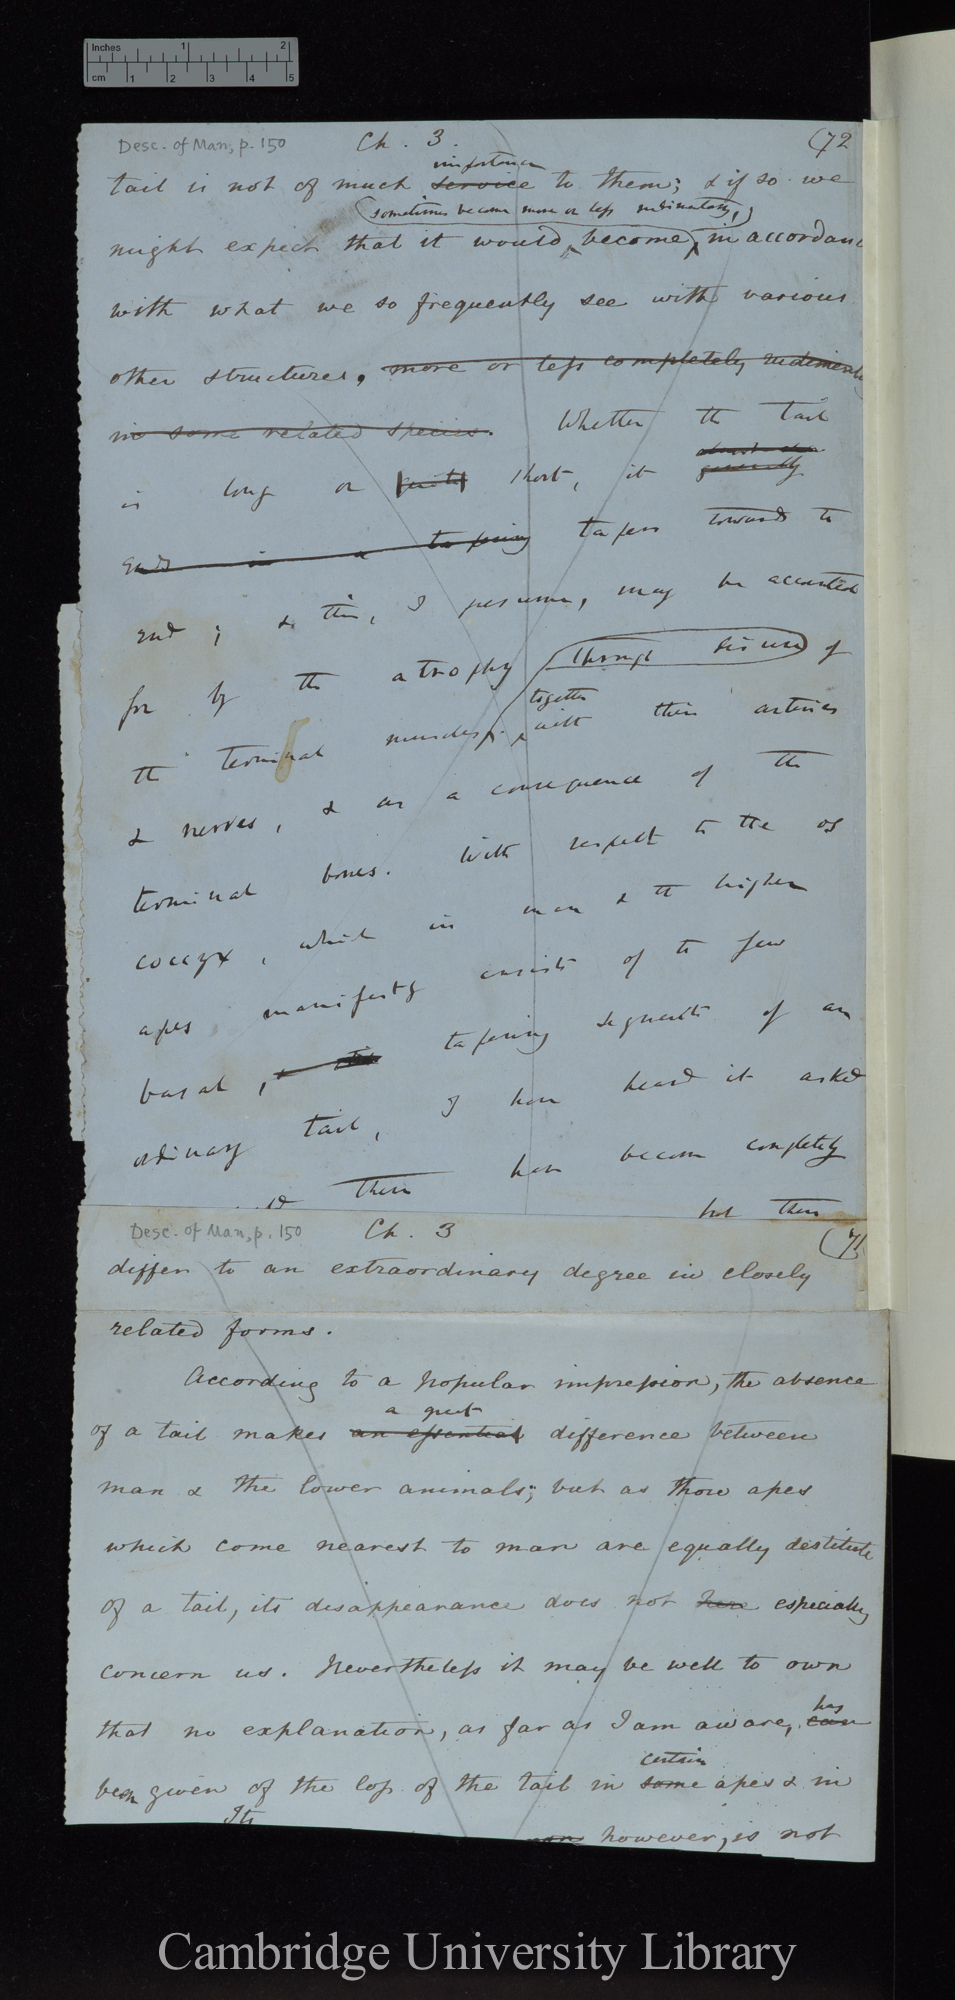 Inches 1 2
cm 1 2 3 4 5
Desc. of Man, p. 150 Ch. 3. (72
importance
tail is not of much service to them; & if so we
sometimes become more or less rudimentary,
might expect that it would become, in accordanc
with what we so frequently see with various
other structures, more or less completely rudimenta
in some related species. Whether the tail
is long or quite short, it generally
ends in a tapering tapers towards the
end; & this, I presume, may be accounted
for by the atrophy through disuse of
together
the terminal muscles, with their arteries
& nerves, & as a consequence of the
terminal bones. With respect to the os
coccyx, which in man & the higher
apes manifestly consists of the few
basal, & tapering segments of an
ordinary tail, I have heard it asked
have become completely
them but then
Desc. of Man, p. 150 Ch. 3 (71
differ to an extraordinary degree in closely
related forms.
According to a popular impression, the absence
a great
of a tail makes an essential difference between
man & the lower animals; but as those apes
which come nearest to man are equally destitute
of a tail, its disappearance does not here especially
concern us. Nevertheless it may be well to own
has
that no explanation, as far as I am aware, can
certain
been given of the loss of the tail in some apes & in
Its
man however, is not
Cambridge University Library